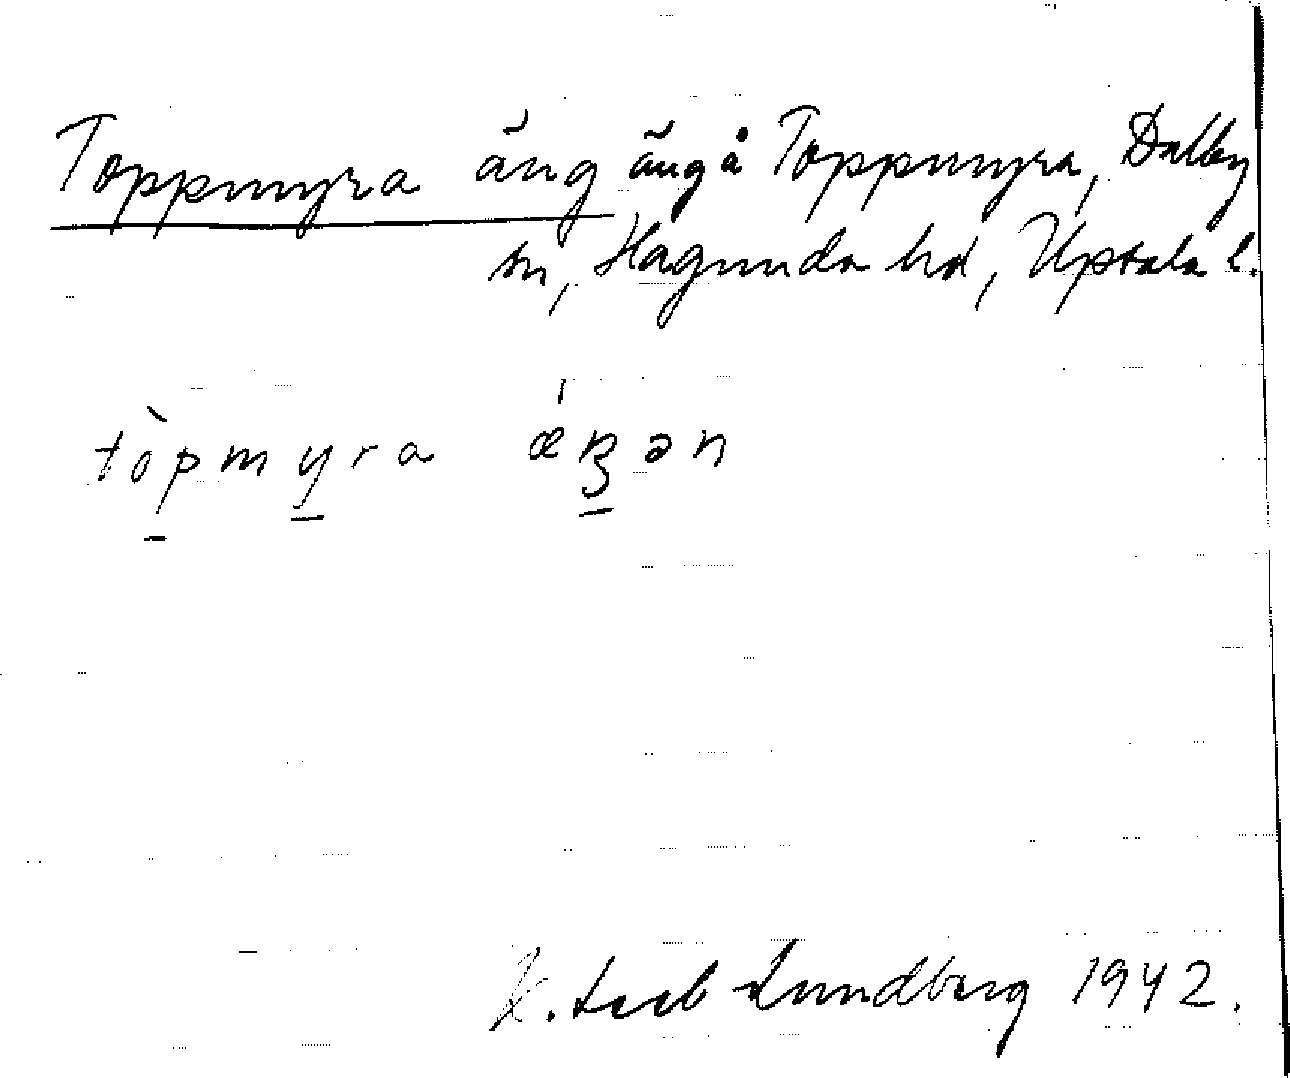 Toppmyra äng äng å Toppmyra, Dalby
sn, Hagunda hd, Upsala l.
tòpmyra ǽŋən
Lundberg 1942.